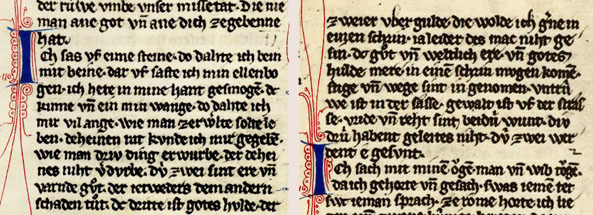 der ruwe vmbe vnser missetat. Die nie
man ane got vn̄ ane dich zegebenne
hat.
Ich sas vf eime steine. do dahte ich bein
mit beine. dar vf saste ich min ellenbo
gen. ich hete in mine hant gesmogē. dc
kinne vn̄ ein min wange. do dahte ich
mir vil ange. wie man zer welte solte le
ben. deheinen rat kunde ich mir gegebē.
wie man driv ding erwurbe. der dehei
nes niht verdurbe. div zwei sint ere vn̄
varnde gůt. der ietweders dem andern
schaden tůt. dc dritte ist gotes hvlde. der
zweier vber gulde. die wolde ich gerne in
einen schrin. ia leider des mac niht ge
sin. dc gůt vn̄ weltlich ere. vn̄ gotes
hulde mere. in einē schrin mogen komē.
stige vn̄ wege sint in genomen. vntrů
we ist in der sasse. gewalt ist vf der stras
se. vride vn̄ reht sint beidiv wunt. div
driv habent geleites niht. div zwei wer
dent e gesunt.
Ich sach mit minē ỏgē. man vn̄ wib tỏgē.
da ich gehorte vn̄ gesach. swas iemen tet
swc ieman sprach. ze rome horte ich lie